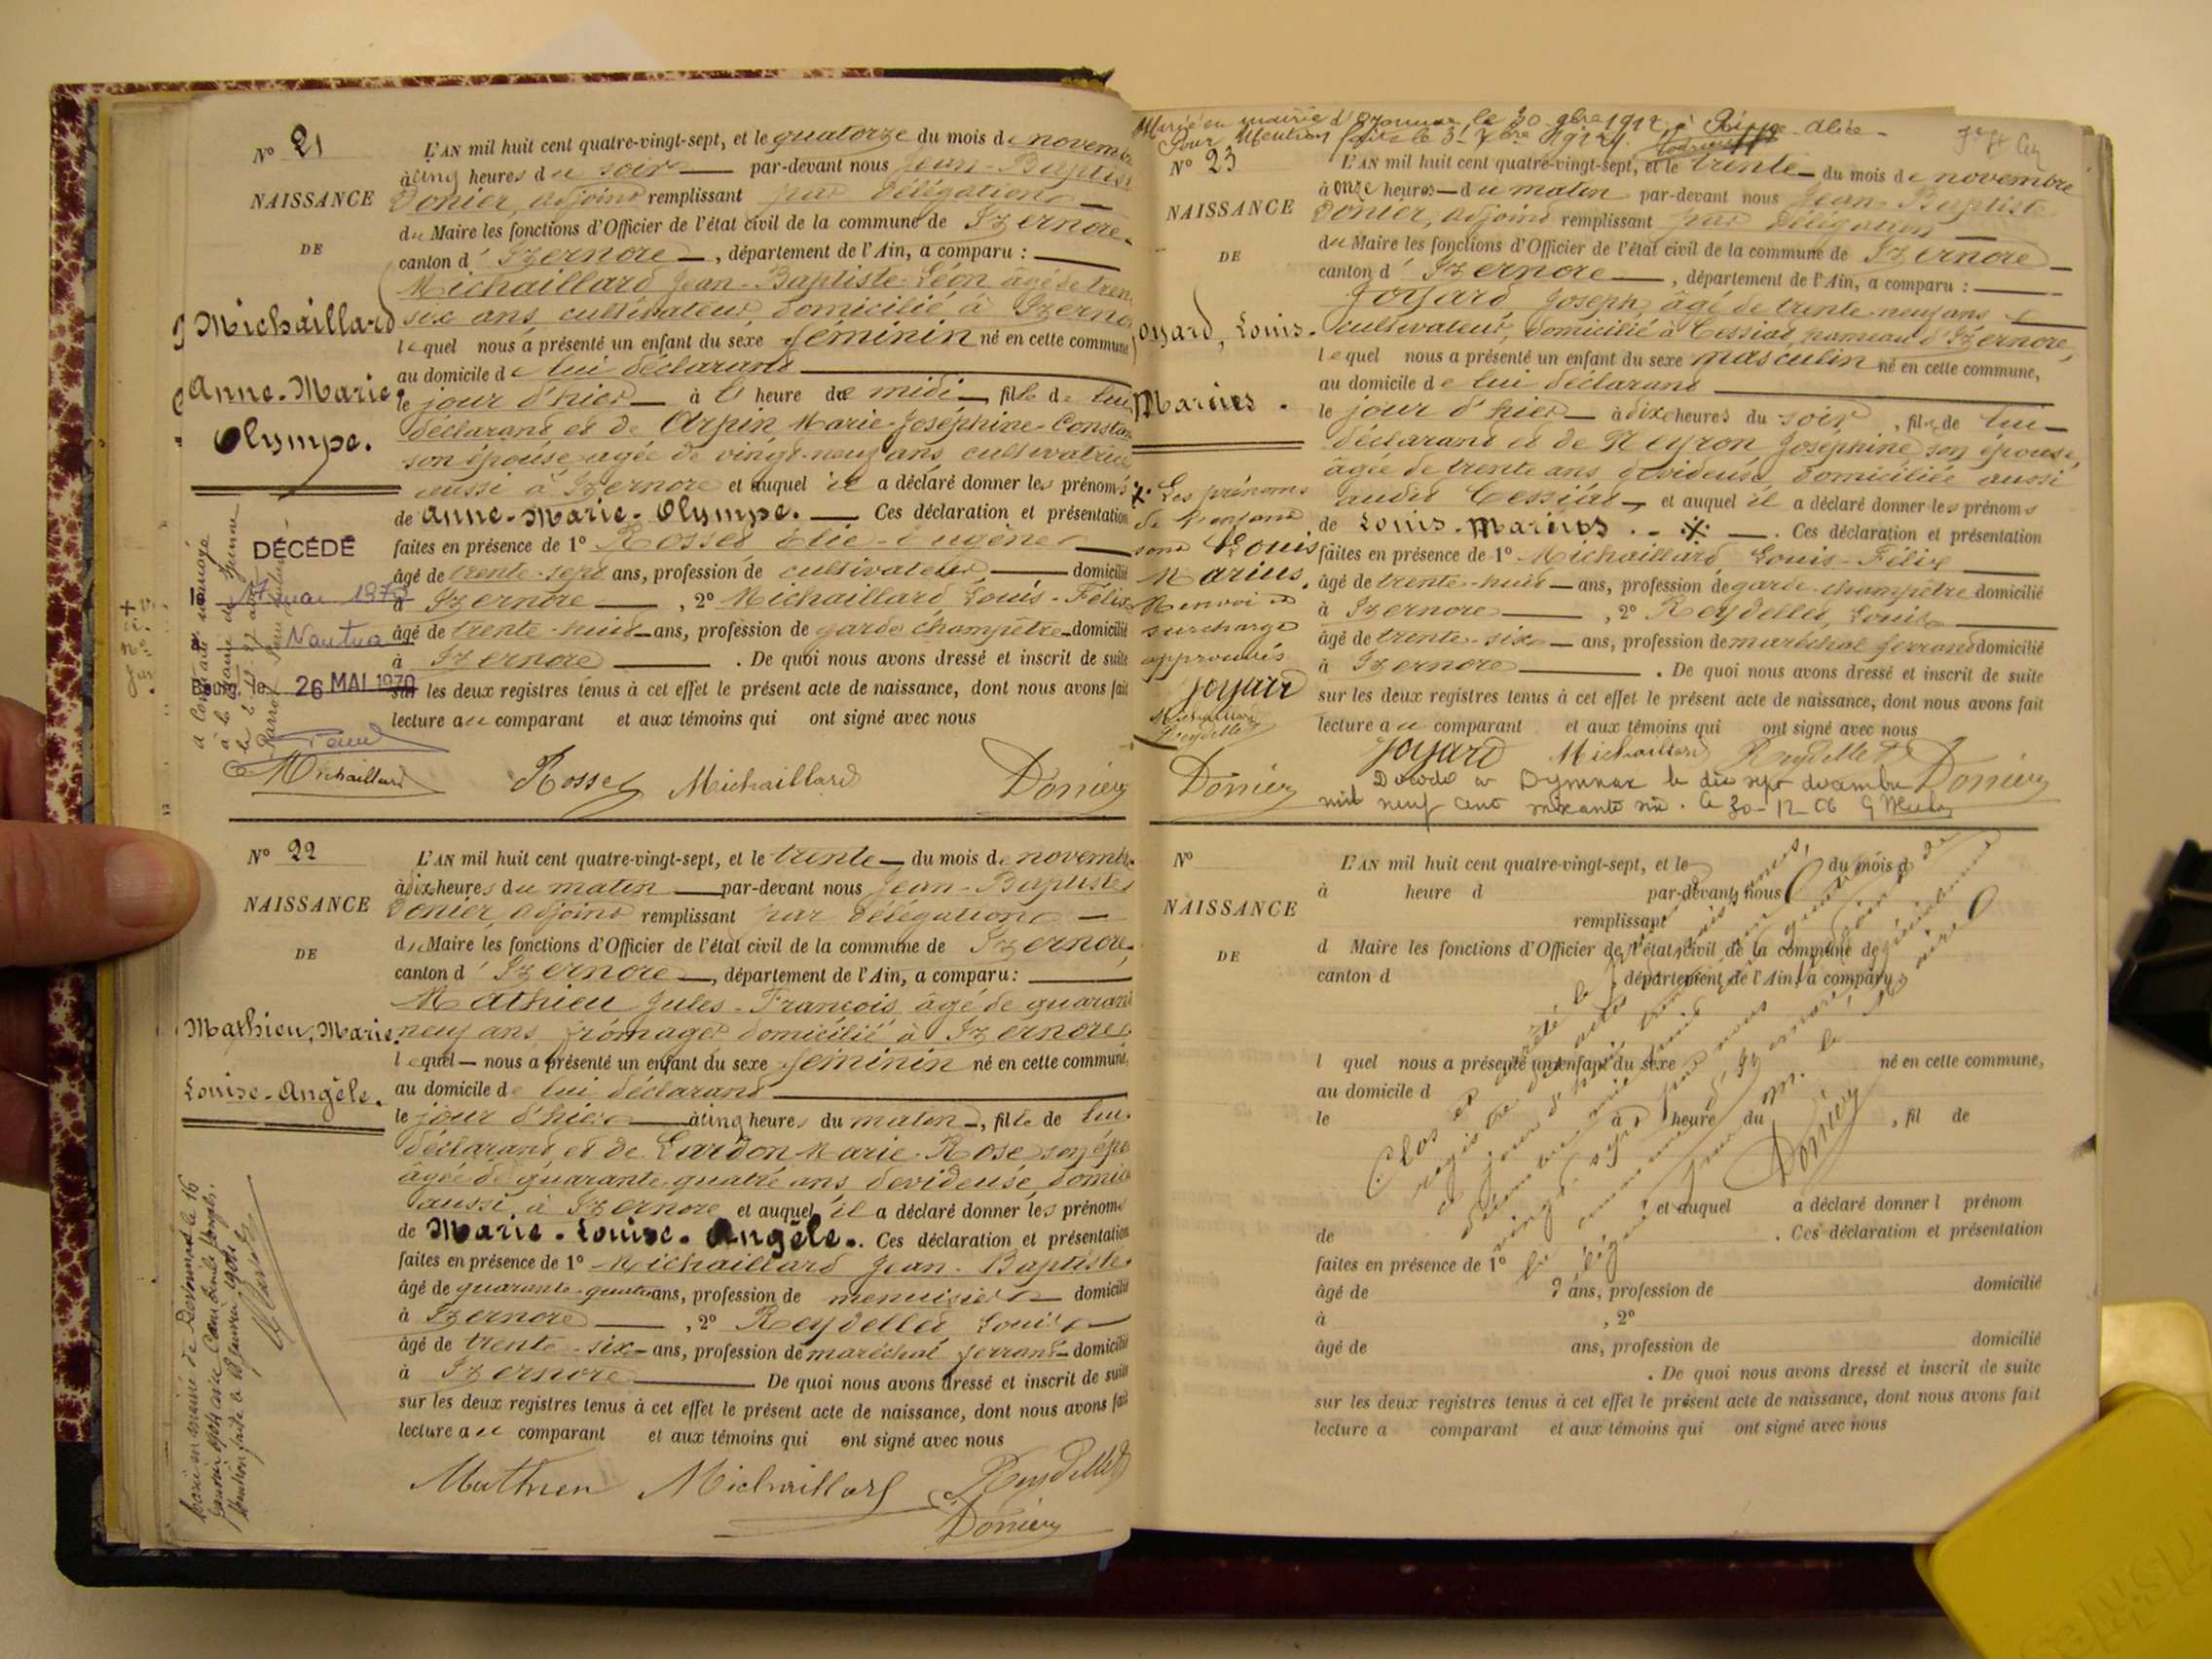 N° 21
NAISSANCE
DE
Michaillard
Anne-Marie
Olympe.
L'AN mil huit cent quatre-vingt-sept, et le quatorze du mois de novembre
à cinq heures du soir — par-devant nous Jean-Baptiste
Donier, adjoint remplissant par délégation —
du Maire les fonctions d'Officier de l'état civil de la commune de Izernore
canton d'Izernore —, département de l'Ain, a comparu :
Michaillard Jean-Baptiste-Léon âgé de trente
six ans, cultivateur domicilié à Izernore
lequel nous a présenté un enfant du sexe féminin né en cette commune
au domicile de lui déclarant
le jour d'hier — à heure de midi —, fille de lui
déclarant et de Arpin Marie-Joséphine-
son épouse âgée de vingt-neuf ans cultivatrice
aussi à Izernore et auquel il a déclaré donner les prénoms
de Anne-Marie-Olympe. — Ces déclaration et présentation
faites en présence de 1° Rosset Elie-Eugène
âgé de trente-sept ans, profession de cultivateur — domicilié
à Izernore —, 2° Michaillard Louis-Félix
âgé de trente-huit — ans, profession de garde champêtre — domicilié
à Izernore — . De quoi nous avons dressé et inscrit de suite
sur les deux registres tenus à cet effet le présent acte de naissance, dont nous avons fait
lecture au comparant et aux témoins qui ont signé avec nous
DÉCÉDÉ
le mai 197
à Nantua
26 MAI 1970
Michaillard Rosset Michaillard Donier
N° 22
NAISSANCE
DE
Mathieu, Marie
Louise-Angèle.
L'AN mil huit cent quatre-vingt-sept, et le trente — du mois de novembre
à dix heures du matin — par-devant nous Jean-Baptiste
Donier, adjoint remplissant par délégation —
du Maire les fonctions d'Officier de l'état civil de la commune de Izernore
canton d'Izernore —, département de l'Ain, a comparu :
Mathieu Jules-François âgé de quarante
neuf ans fromager domicilié à Izernore
lequel — nous a présenté un enfant du sexe féminin né en cette commune,
au domicile de lui déclarant
le jour d'hier — à cinq heures du matin —, fille de lui
déclarant et de Lardon Marie-Rose son
âgée de quarante-quatre ans dévideuse
aussi à Izernore et auquel il a déclaré donner les prénoms
de Marie-Louise-Angèle. Ces déclaration et présentation
faites en présence de 1° Michaillard Jean-Baptiste
âgé de quarante-quatre ans, profession de menuisier — domicilié
à Izernore —, 2° Reydellet Louis —
âgé de trente-six — ans, profession de maréchal ferrant — domicilié
à Izernore — De quoi nous avons dressé et inscrit de suite
sur les deux registres tenus à cet effet le présent acte de naissance, dont nous avons fait
lecture au comparant et aux témoins qui ont signé avec nous
Mathieu Michaillard Reydellet
Donier
Marié en mairie d'Oyonnax le 30 1912 à Alice
Pour Mention faite le
N° 23
NAISSANCE
DE
Joyard, Louis.
Marius.
L'AN mil huit cent quatre-vingt-sept, et le trente — du mois de novembre
à onze heures — du matin par-devant nous Jean-Baptiste
Donier, adjoint remplissant par délégation —
du Maire les fonctions d'Officier de l'état civil de la commune de Izernore —
canton d'Izernore —, département de l'Ain, a comparu :
Joyard Joseph, âgé de trente-neuf ans
cultivateur, domicilié à Cessiat, hameau d'Izernore,
lequel nous a présenté un enfant du sexe masculin né en cette commune,
au domicile de lui déclarant
le jour d'hier — à dix heures du soir, fils de lui —
déclarant et de Neyron Joséphine son épouse,
âgée de trente ans dévideuse domiciliée aussi
audit Cessiat — et auquel il a déclaré donner les prénoms
de Louis-Marius. — Ces déclaration et présentation
faites en présence de 1° Michaillard Louis-Félix
âgé de trente-huit — ans, profession de garde champêtre domicilié
à Izernore —, 2° Reydellet, Louis
âgé de trente-six — ans, profession de maréchal ferrant domicilié
à Izernore — . De quoi nous avons dressé et inscrit de suite
sur les deux registres tenus à cet effet le présent acte de naissance, dont nous avons fait
lecture au comparant et aux témoins qui ont signé avec nous
Les prénoms
de l'enfant
sont Louis
Marius.
Renvoi et
surcharge
approuvés
Joyard
Michaillard
Reydellet
Donier
Joyard Michaillard Reydellet Donier
Décédé à Oyonnax le dix sept décembre
mil neuf cent soixante six. Le 30-12-66
N°
NAISSANCE
DE
L'AN mil huit cent quatre-vingt-sept, et le du mois d
à heure d par-devant nous
remplissant
d Maire les fonctions d'Officier de l'état civil de la commune de
canton d , département de l'Ain, a comparu
l quel nous a présenté un enfant du sexe né en cette commune,
au domicile d
le à heure du , fil de
et auquel a déclaré donner l prénom
de . Ces déclaration et présentation
faites en présence de 1°
âgé de ans, profession de domicilié
à , 2°
âgé de ans, profession de domicilié
. De quoi nous avons dressé et inscrit de suite
sur les deux registres tenus à cet effet le présent acte de naissance, dont nous avons fait
lecture a comparant et aux témoins qui ont signé avec nous
Clos et arrêté le
Donier